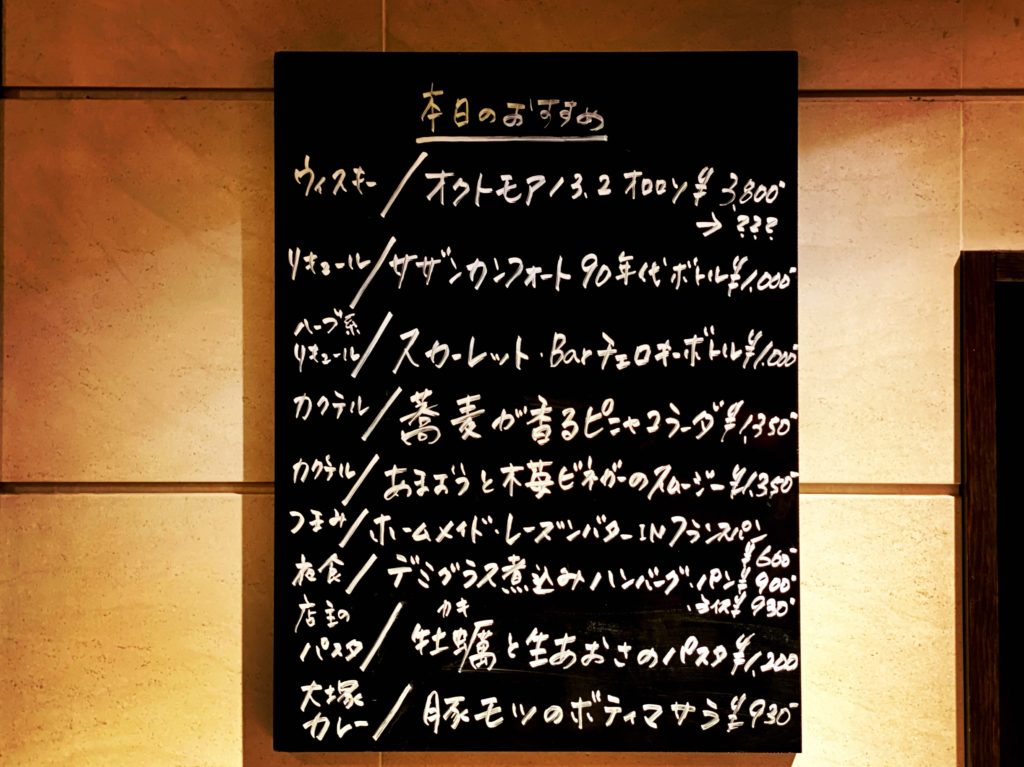 本日のおすすめ
ウィスキー / オクトモア13.2 オロロソ ¥3,800-
→ ???
リキュール / サザンカンフォート 90年代ボトル ¥1,000-
ハーブ系
リキュール / スカーレット・Barチェロキーボトル ¥1,000-
カクテル / 蕎麦が香るピニャコラーダ ¥1,350-
カクテル / あまおうと木苺ビネガーのスムージー ¥1,350-
つまみ / ホームメイド・レーズンバター IN フランスパン
¥660-
夜食 / デミグラス煮込みハンバーグ・パン ¥900-
・ライス ¥930-
店主の
パスタ / 牡蠣と生あおさのパスタ ¥1,200
カキ
大塚
カレー / 豚モツのボティマサラ ¥930-